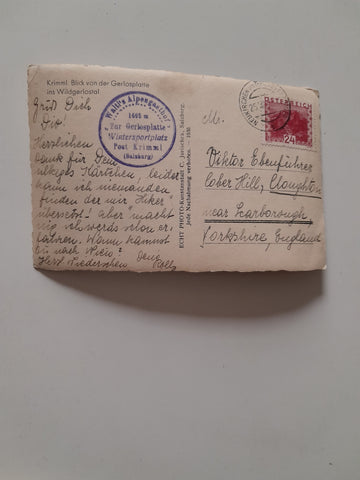 Krimml. Blick von der Gerlosplatte
ins Wildgerlostal
Grüß Dich
Herzlichen
Dank für Dein
Kärtchen, leider
kann ich niemanden
finden der mir "Hiker"
übersetzt! aber macht
ich werds schon er-
Wann kommst
Du nach Wien?
Herzl. Wiedersehen Deine
Walti's Alpengasthof
1695 m
Zur Gerlosplatte
Wintersportplatz
Post Krimml
(Salzburg)
ECHT PHOTO Kunstanstalt C. Jurischek, Salzburg.
Jede Nachahmung verboten. 1930
ÖSTERREICH
24
Mr.
Viktor Ebenführer
Cober Hill, Cloughton
near Scarborough
Yorkshire, England